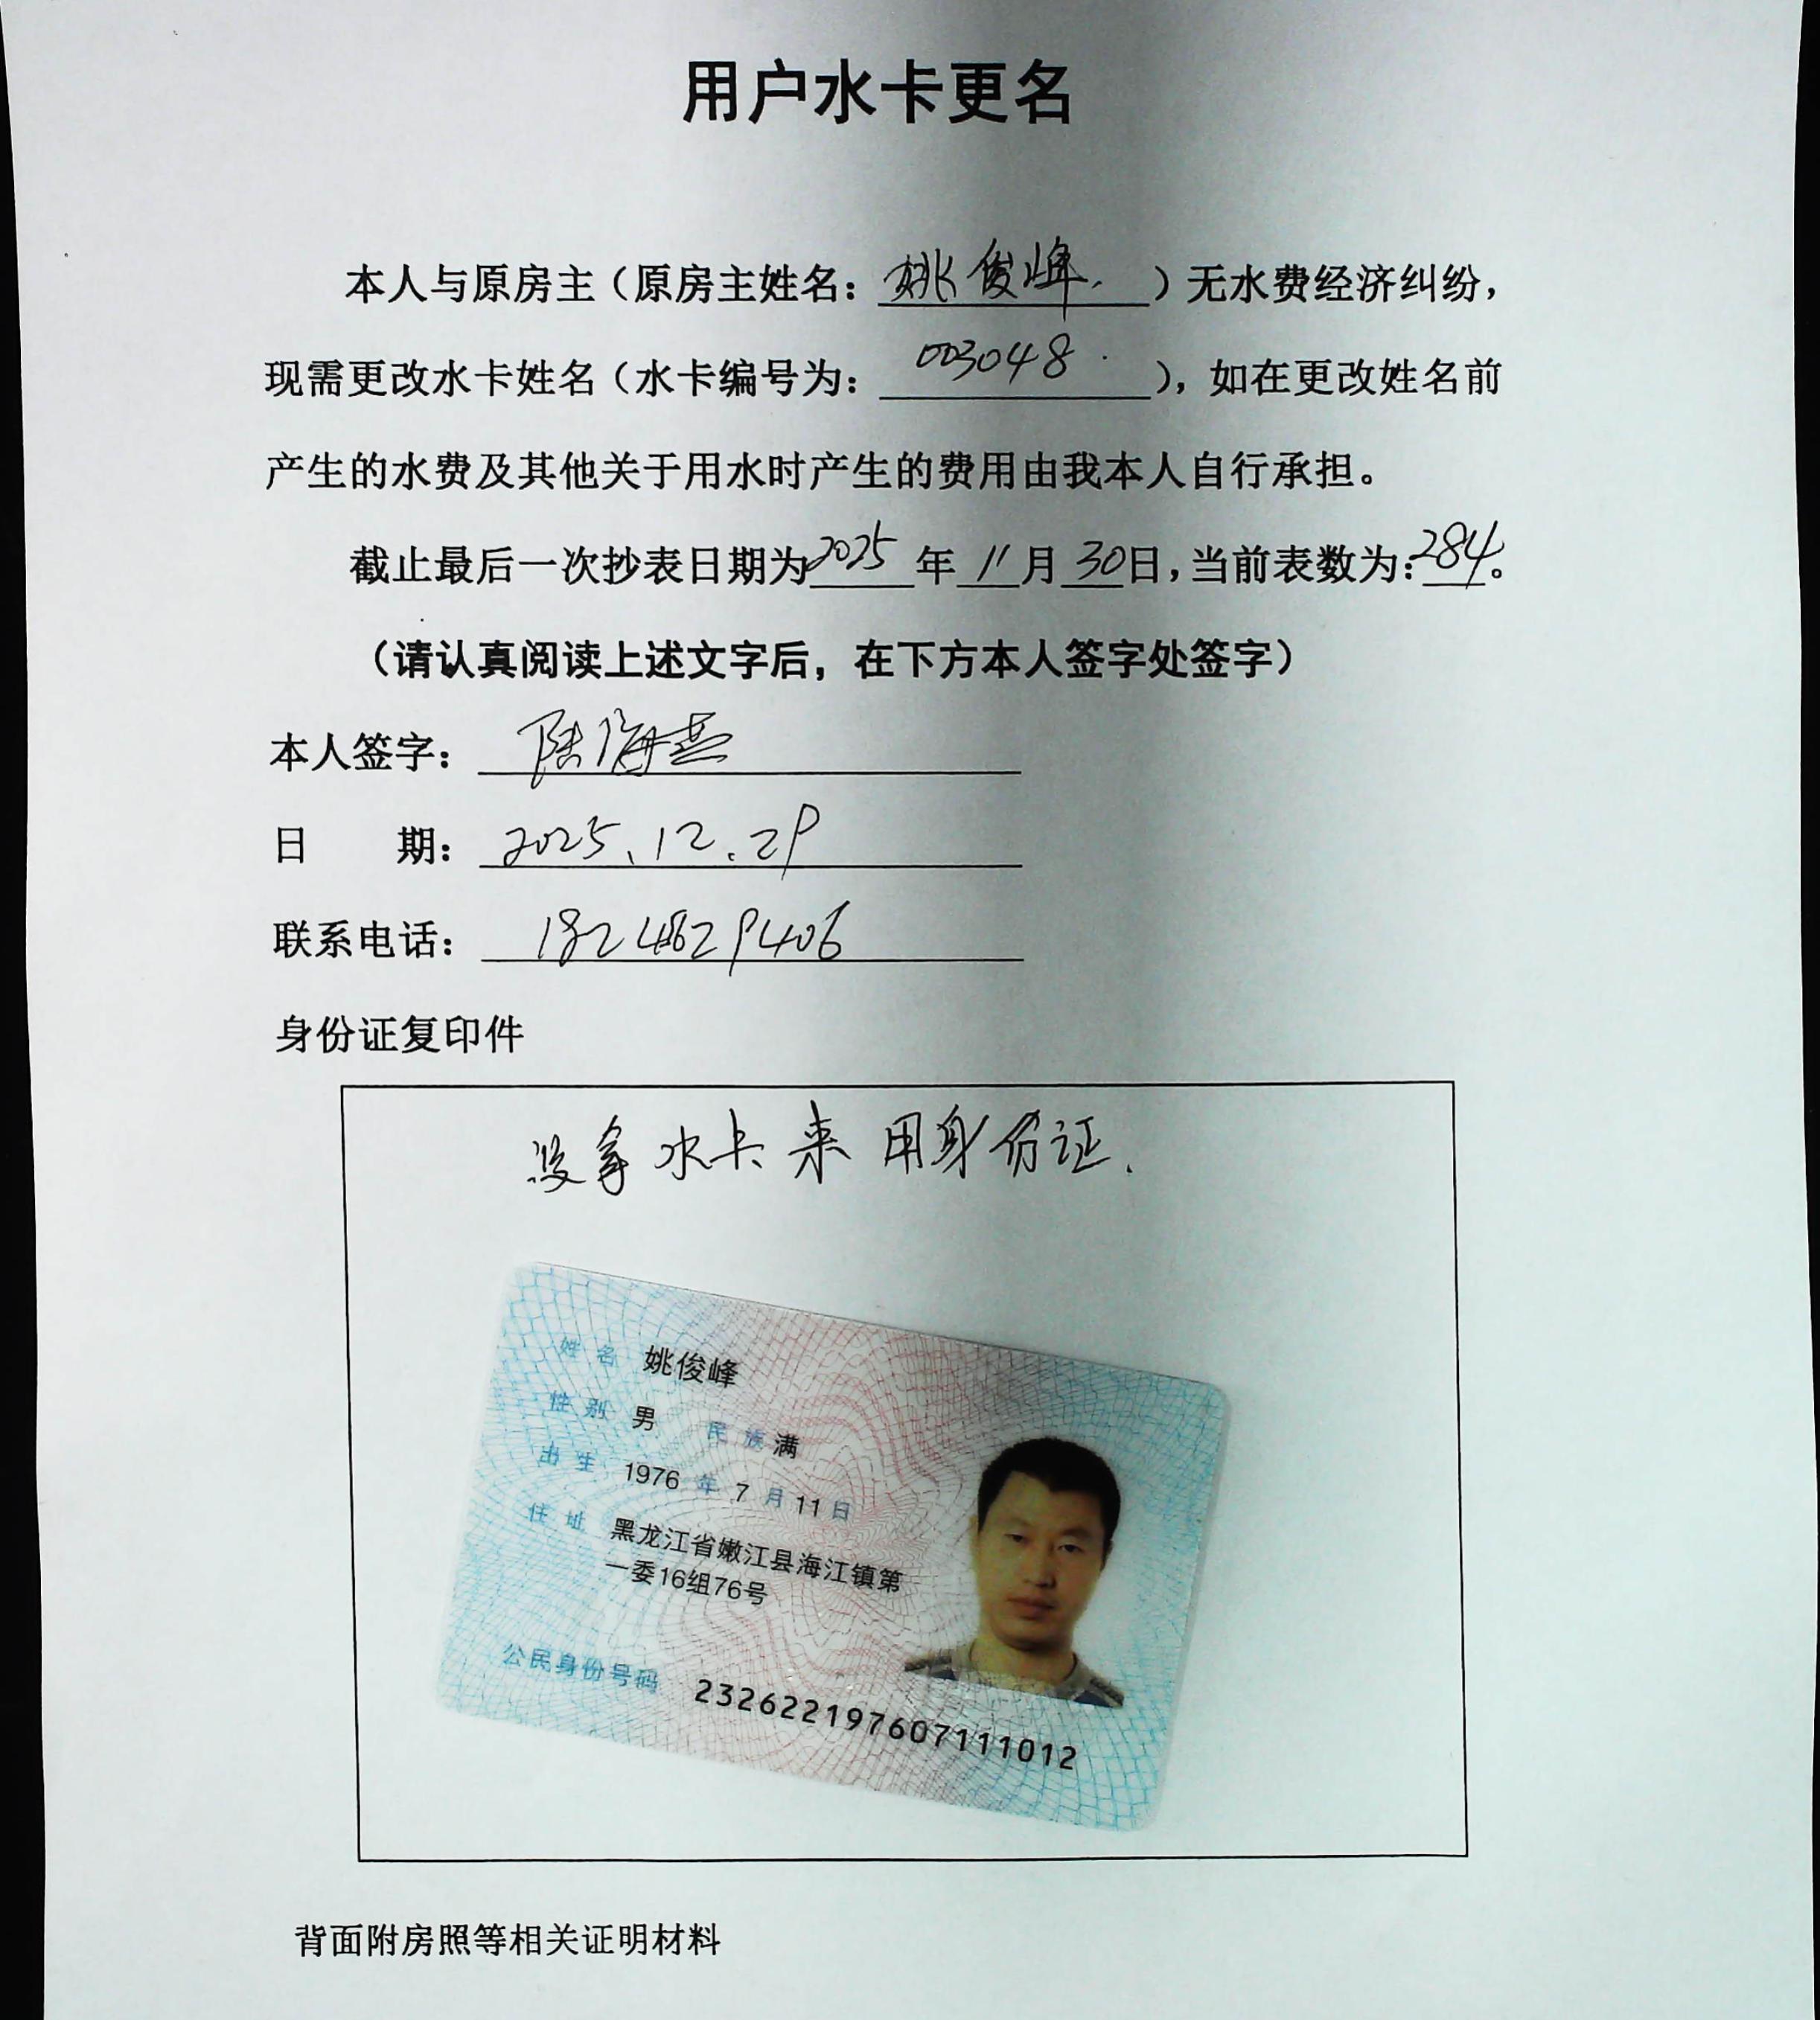 用户水卡更名
本人与原房主（原房主姓名：姚俊峰.）无水费经济纠纷，
现需更改水卡姓名（水卡编号为：003048），如在更改姓名前
产生的水费及其他关于用水时产生的费用由我本人自行承担。
截止最后一次抄表日期为2025年11月30日，当前表数为：284。
（请认真阅读上述文字后，在下方本人签字处签字）
本人签字：陆海燕
日 期：2025.12.29
联系电话：18248629406
身份证复印件
没拿水卡来 用身份证.
姓名 姚俊峰
性别 男 民族 满
出生 1976 年 7 月 11 日
住址 黑龙江省嫩江县海江镇第
一委16组76号
公民身份号码 232622197607111012
背面附房照等相关证明材料